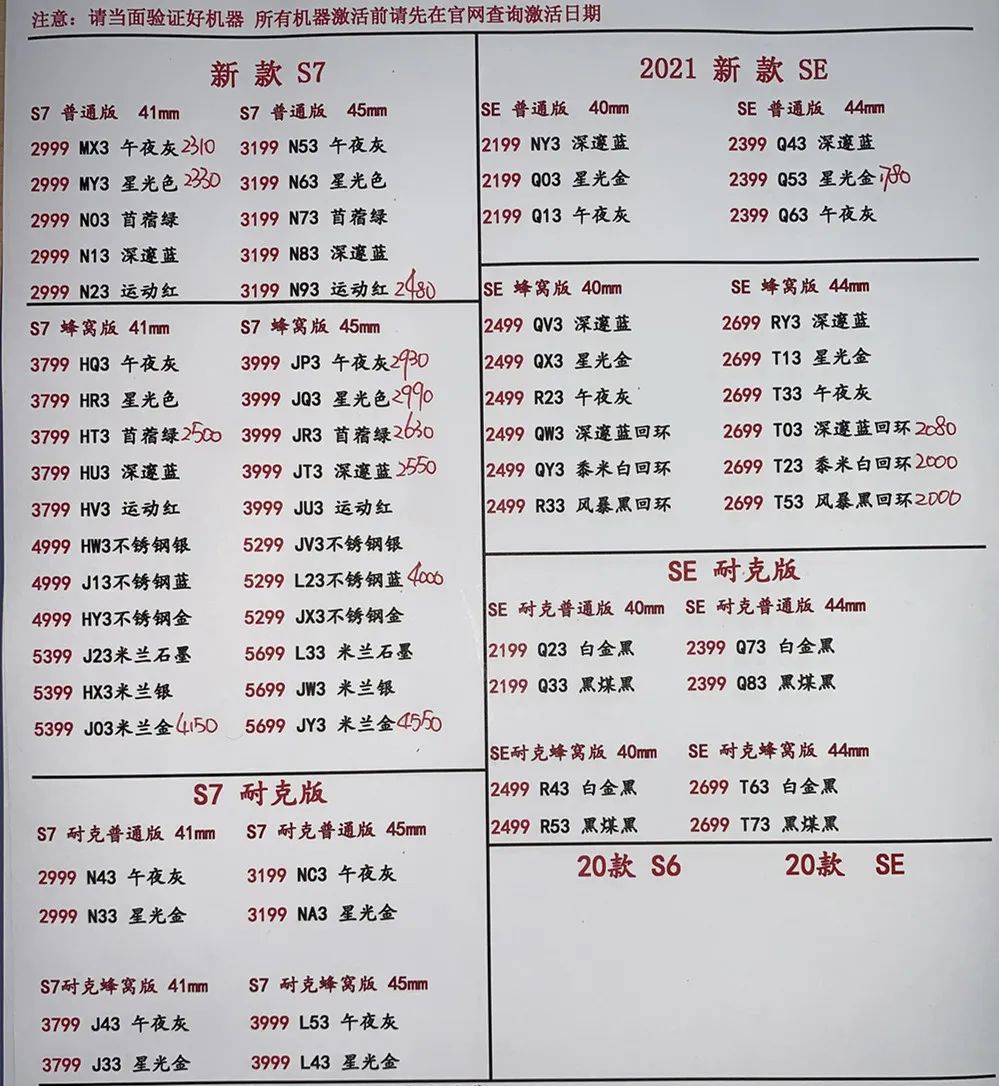 注意：请当面验证好机器 所有机器激活前请先在官网查询激活日期
新 款 S7
S7 普通版 41mm
2999 MX3 午夜灰 2310
2999 MY3 星光色 2330
2999 N03 首蓿绿
2999 N13 深邃蓝
2999 N23 运动红
S7 普通版 45mm
3199 N53 午夜灰
3199 N63 星光色
3199 N73 首蓿绿
3199 N83 深邃蓝
3199 N93 运动红 2480
S7 蜂窝版 41mm
3799 HQ3 午夜灰
3799 HR3 星光色
3799 HT3 首蓿绿 2500
3799 HU3 深邃蓝
3799 HV3 运动红
4999 HW3不锈钢银
4999 J13不锈钢蓝
4999 HY3不锈钢金
5399 J23米兰石墨
5399 HX3米兰银
5399 J03米兰金 4150
S7 蜂窝版 45mm
3999 JP3 午夜灰 2930
3999 JQ3 星光色 2990
3999 JR3 首蓿绿 2630
3999 JT3 深邃蓝 2550
3999 JU3 运动红
5299 JV3不锈钢银
5299 L23不锈钢蓝 4000
5299 JX3不锈钢金
5699 L33 米兰石墨
5699 JW3 米兰银
5699 JY3 米兰金 4550
S7 耐克版
S7 耐克普通版 41mm
2999 N43 午夜灰
2999 N33 星光金
S7 耐克普通版 45mm
3199 NC3 午夜灰
3199 NA3 星光金
S7耐克蜂窝版 41mm
3799 J43 午夜灰
3799 J33 星光金
S7 耐克蜂窝版 45mm
3999 L53 午夜灰
3999 L43 星光金
2021 新 款 SE
SE 普通版 40mm
2199 NY3 深邃蓝
2199 Q03 星光金
2199 Q13 午夜灰
SE 普通版 44mm
2399 Q43 深邃蓝
2399 Q53 星光金 1780
2399 Q63 午夜灰
SE 蜂窝版 40mm
2499 QV3 深邃蓝
2499 QX3 星光金
2499 R23 午夜灰
2499 QW3 深邃蓝回环
2499 QY3 黍米白回环
2499 R33 风暴黑回环
SE 蜂窝版 44mm
2699 RY3 深邃蓝
2699 T13 星光金
2699 T33 午夜灰
2699 T03 深邃蓝回环 2080
2699 T23 黍米白回环 2000
2699 T53 风暴黑回环 2000
SE 耐克版
SE 耐克普通版 40mm
2199 Q23 白金黑
2199 Q33 黑煤黑
SE 耐克普通版 44mm
2399 Q73 白金黑
2399 Q83 黑煤黑
SE耐克蜂窝版 40mm
2499 R43 白金黑
2499 R53 黑煤黑
SE 耐克蜂窝版 44mm
2699 T63 白金黑
2699 T73 黑煤黑
20款 S6
20款 SE